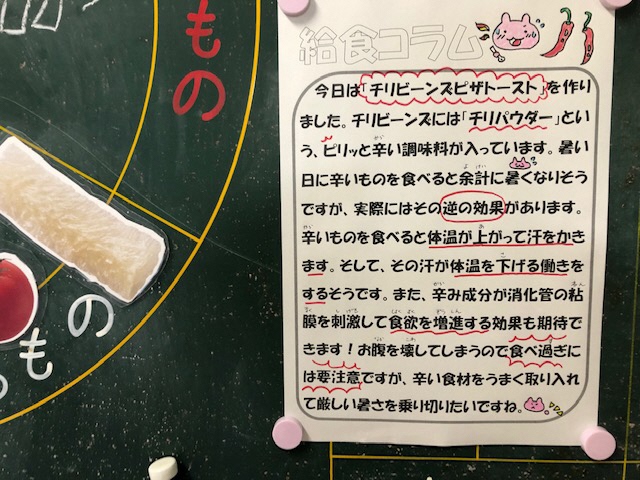 もの
もの
給食コラム
今日は「チリビーンズピザトースト」を作り
ました。チリビーンズには「チリパウダー」とい
う、ピリッと辛い調味料が入っています。暑い
日に辛いものを食べると余計に暑くなりそう
ですが、実際にはその逆の効果があります。
辛いものを食べると体温が上がって汗をかき
ます。そして、その汗が体温を下げる働きを
するそうです。また、辛み成分が消化管の粘
膜を刺激して食欲を増進する効果も期待で
きます！お腹を壊してしまうので食べ過ぎに
は要注意ですが、辛い食材をうまく取り入れ
て厳しい暑さを乗り切りたいですね。